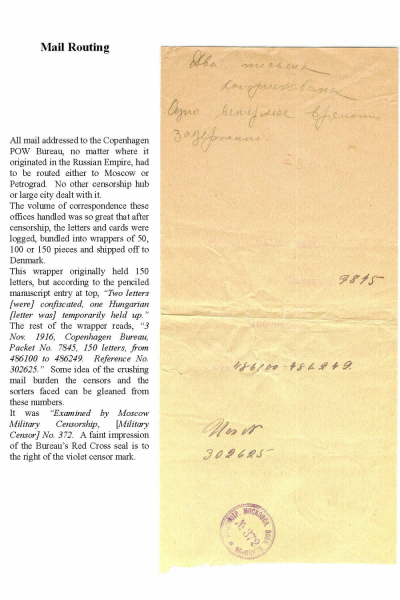 Mail Routing
All mail addressed to the Copenhagen
POW Bureau, no matter where it
originated in the Russian Empire, had
to be routed either to Moscow or
Petrograd. No other censorship hub
or large city dealt with it.
The volume of correspondence these
offices handled was so great that after
censorship, the letters and cards were
logged, bundled into wrappers of 50,
100 or 150 pieces and shipped off to
Denmark.
This wrapper originally held 150
letters, but according to the penciled
manuscript entry at top, “Two letters
[were] confiscated, one Hungarian
[letter was] temporarily held up.”
The rest of the wrapper reads, “3
Nov. 1916, Copenhagen Bureau,
Packet No. 7845, 150 letters, from
486100 to 486249. Reference No.
302625.” Some idea of the crushing
mail burden the censors and the
sorters faced can be gleaned from
these numbers.
It was “Examined by Moscow
Military Censorship, [Military
Censor] No. 372. A faint impression
of the Bureau's Red Cross seal is to
the right of the violet censor mark.
Два письма
Одно временно
задержано.
7845
486100-486249.
302625
№ 372